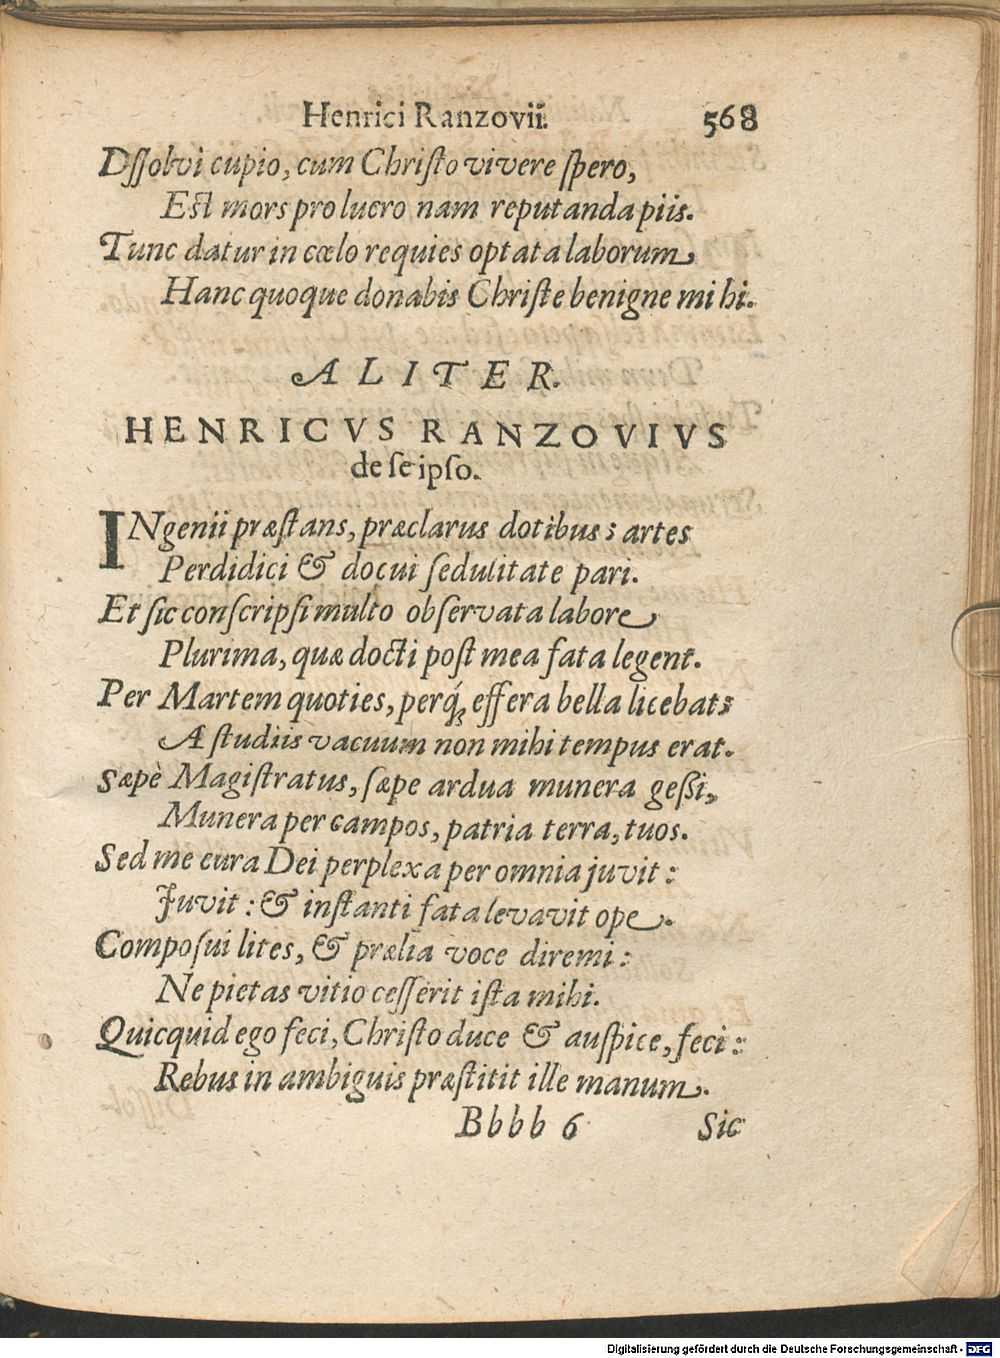 Henrici Ranzovii. 568
Dſſolvi cupio, cum Chriſto vivere ſpero,
Eſt mors pro lucro nam reputanda piis.
Tunc datur in cœlo requies optata laborum,
Hanc quoque donabis Chriſte benigne mihi.
ALITER.
HENRICVS RANZOVIVS
de ſe ipſo.
INgenii præſtans, præclarus dotibus; artes
Perdidici & docui ſedulitate pari.
Et ſic conſcripſi multo obſervata labore
Plurima, quæ docti poſt mea fata legent.
Per Martem quoties, perq́; effera bella licebat;
A ſtudiis vacuum non mihi tempus erat.
Sæpè Magiſtratus, ſæpe ardua munera geſſi,
Munera per campos, patria terra, tuos.
Sed me cura Dei perplexa per omnia juvit:
Juvit: & inſtanti fata levavit ope.
Compoſui lites, & prælia voce diremi:
Ne pietas vitio ceſſerit iſta mihi.
Quicquid ego feci, Chriſto duce & auſpice, feci:
Rebus in ambiguis præſtitit ille manum.
Bbbb 6 Sic
Digitalisierung gefördert durch die Deutsche Forschungsgemeinschaft - DFG